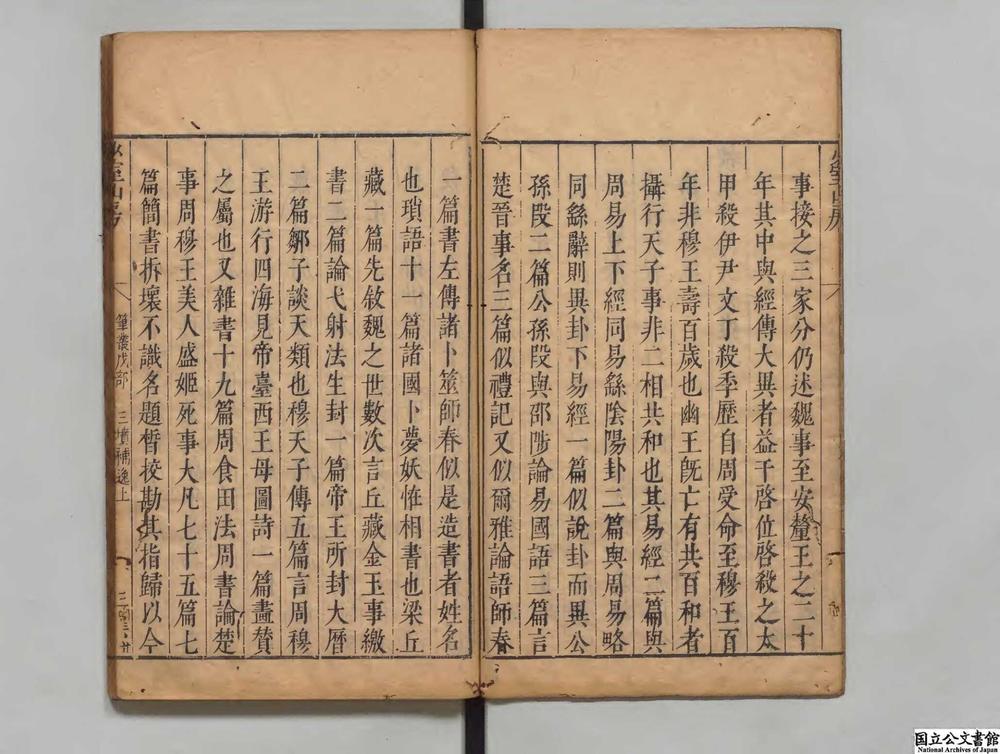 事接之三家分仍述魏事至安釐王之二十
年其中與經傳大異者益干啓位啓殺之太
甲殺伊尹文丁殺季歷自周受命至穆王百
年非穆王壽百歲也幽王旣亡有共百和者
攝行天子事非二相共和也其易經二篇與
周易上下經同易繇陰陽卦二篇與周易略
同繇辭則異卦下易經一篇似說卦而異公
孫段二篇公孫段與邵陟論易國語三篇言
楚晉事名三篇似禮記又似爾雅論語師春
一篇書左傳諸卜筮師春似是造書者姓名
也瑣語十一篇諸國卜夢妖恠相書也梁丘
藏一篇先敘魏之世數次言丘藏金玉事繳
書二篇論弋射法生封一篇帝王所封大曆
二篇鄒子談天類也穆天子傳五篇言周穆
王游行四海見帝臺西王母圖詩一篇畫贊
之屬也又雜書十九篇周食田法周書論楚
事周穆王美人盛姬死事大凡七十五篇七
篇簡書折壞不識名題晳挍勘其指歸以今
少室山房
筆叢戊部 三墳補逸上 三
国立公文書館
National Archives of Japan